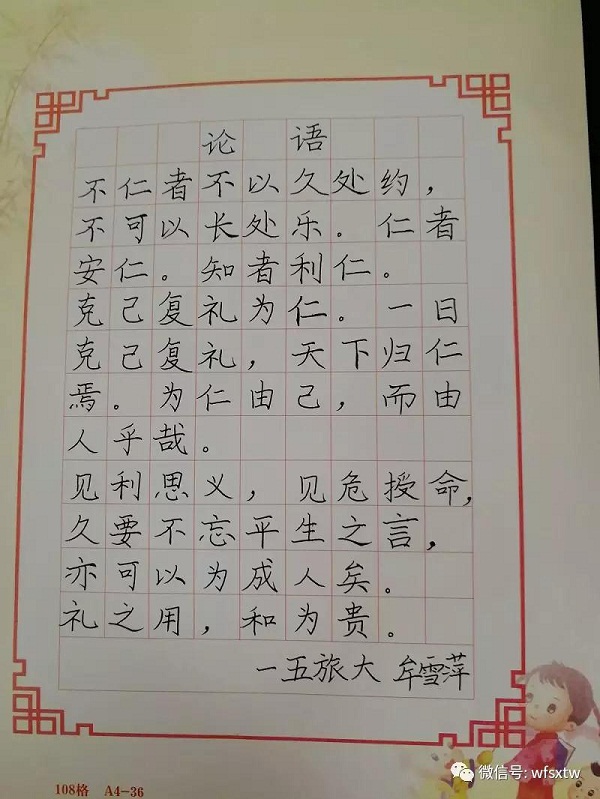 论语
不仁者不以久处约，
不可以长处乐。仁者
安仁。知者利仁。
克己复礼为仁。一日
克己复礼，天下归仁
焉。为仁由己，而由
人乎哉。
见利思义，见危授命，
久要不忘平生之言，
亦可以为成人矣。
礼之用，和为贵。
一五旅大 牟雪萍
108格 A4-36
微信号: wfsxtw